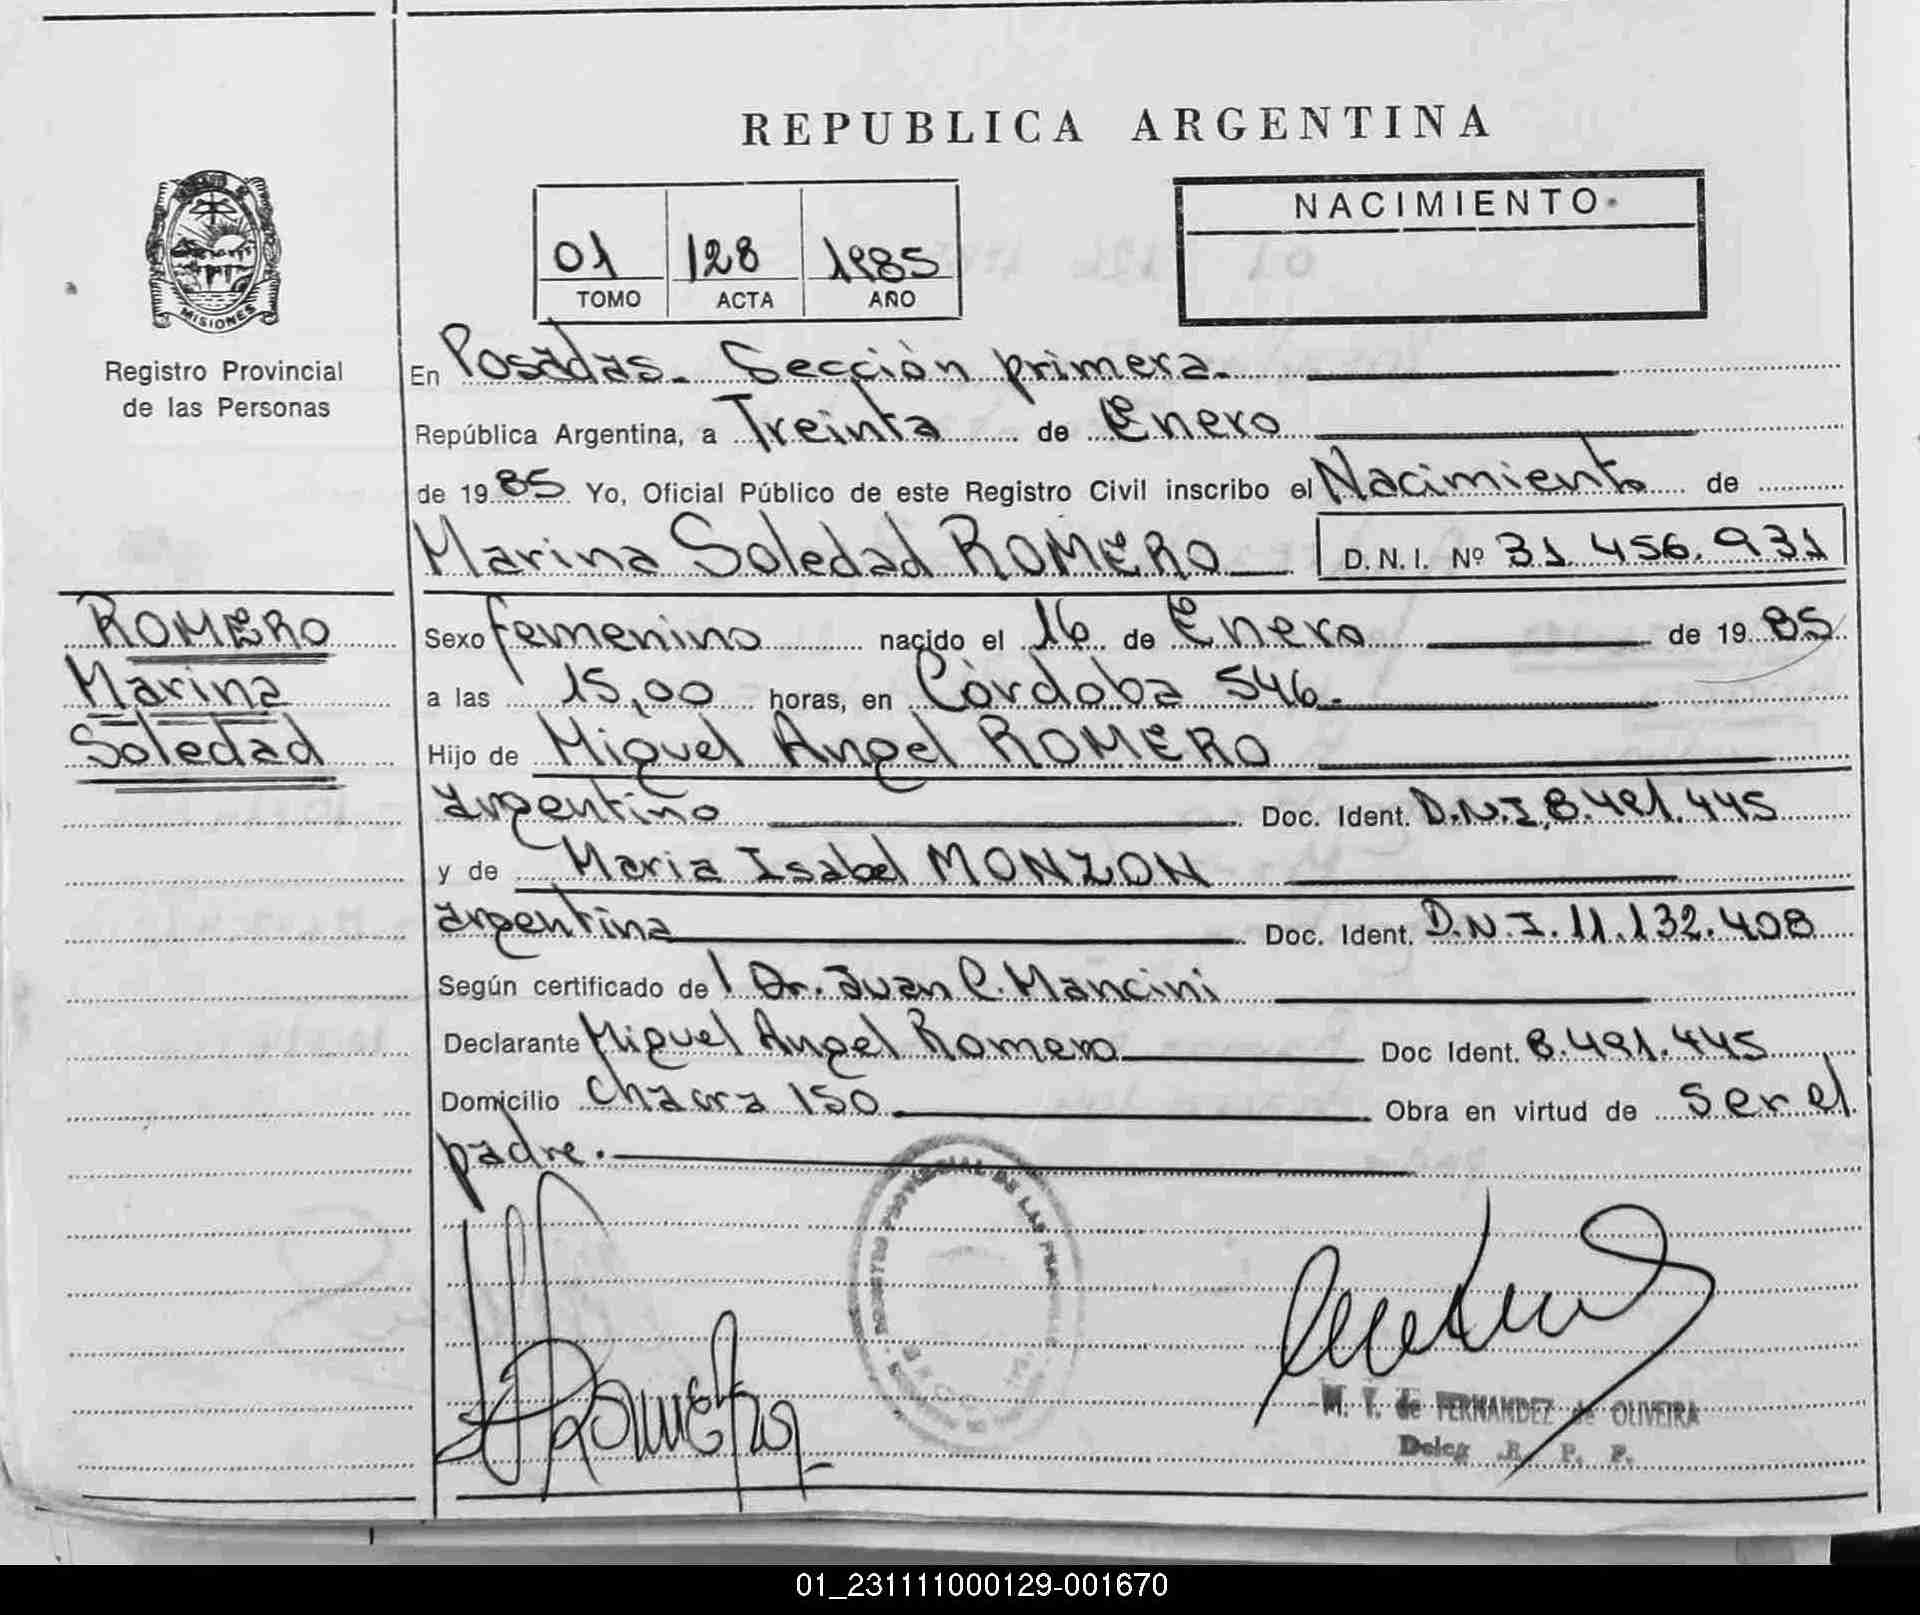 REPUBLICA ARGENTINA
NACIMIENTO
01 128 1985
TOMO ACTA AÑO
MISIONES
Registro Provincial
de las Personas
En Posadas. Sección primera.
República Argentina, a Treinta de Enero
de 1985 Yo, Oficial Público de este Registro Civil inscribo el Nacimiento de
Marina Soledad ROMERO D.N.I. Nº 31.456.931
ROMERO
Marina
Soledad
Sexo femenino nacido el 16 de Enero de 1985
a las 15,00 horas, en Córdoba 546.
Hijo de Miguel Angel ROMERO
argentino Doc. Ident. D.N.I. 8.491.445
y de Maria Isabel MONZON
argentina Doc. Ident. D.N.I. 11.132.408
Según certificado de l Dr. Juan C. Mancini
Declarante Miguel Angel Romero Doc Ident. 8.491.445
Domicilio Chacra 150 Obra en virtud de ser el
padre.
REGISTRO PROVINCIAL DE LAS
Romero
M. T. de FERNANDEZ de OLIVEIRA
Deleg R. P. P.
01_231111000129-001670